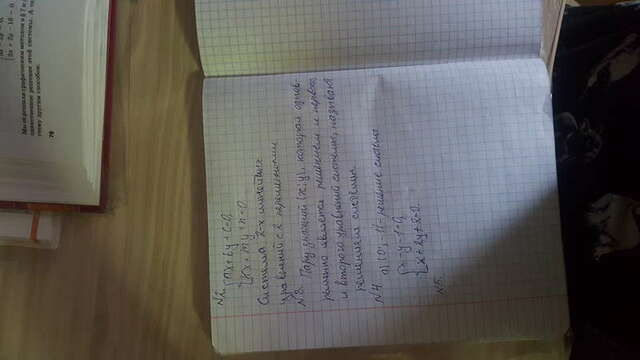 2x + 2y - 16 = 0.
Мы решили графическим методом в § 7 и
единственное решение этой системы. А те
этому другим способом.
76
N2.
{ax+by+c=0,
{kx+my+n=0
Система 2-х линейных
уравнений с 2 переменными
N3.
Пару значений (x; y), которая однов-
ременно является решением и первого,
и второго уравнений системы, называют
решением системы.
N4
а) (0; -1) - решение системы
{x-y-1=0,
{x+2y+2=0.
N5.